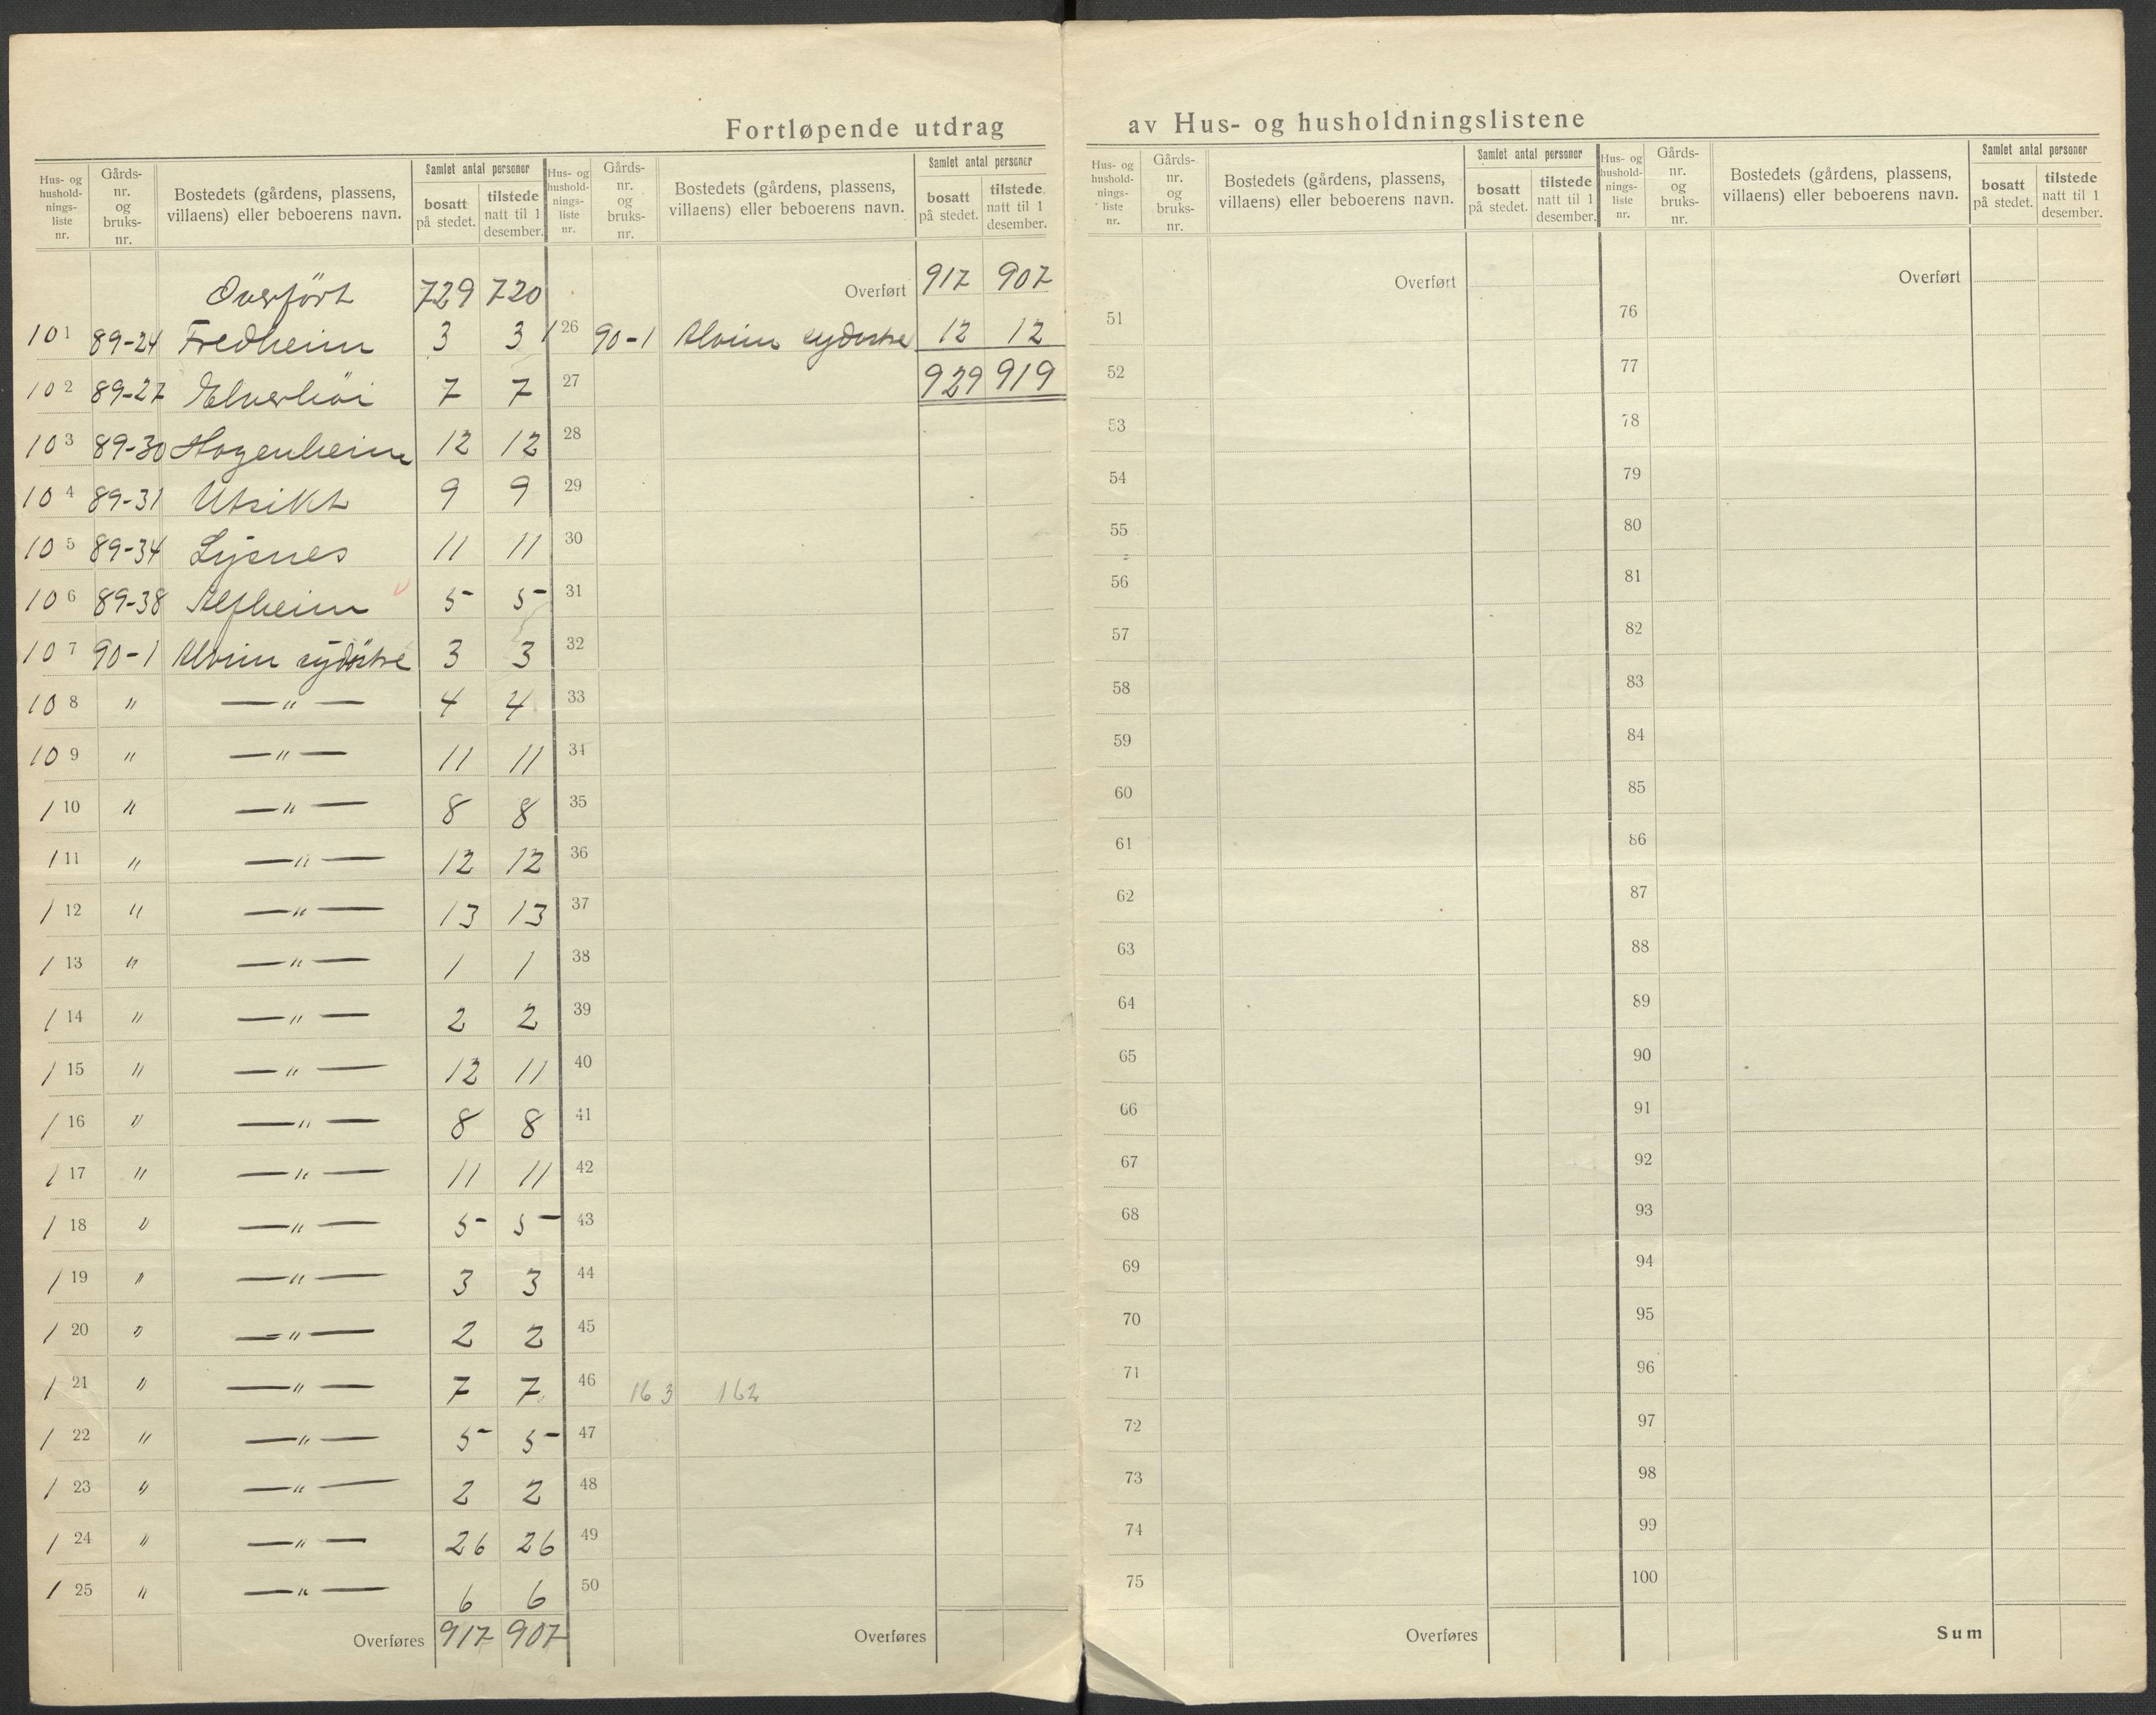 Fortløpende utdrag av Hus- og husholdningslistene
Hus- og hushold-nings-liste nr. Gårds-nr. og bruks-nr. Bostedets (gårdens, plassens, villaens) eller beboerens navn. Samlet antal personer bosatt på stedet. tilstede natt til 1 desember.
Overført 729 720
101 89-24 Fredheim 3 3
102 89-27 Elverhöi 7 7
103 89-30 Hagenheim 12 12
104 89-31 Utsikt 9 9
105 89-34 Lysnes 11 11
106 89-38 Alfheim 5 5
107 90-1 Alvim sydöstre 3 3
108 " —"— 4 4
109 " —"— 11 11
110 " —"— 8 8
111 " —"— 12 12
112 " —"— 13 13
113 " —"— 1 1
114 " —"— 2 2
115 " —"— 12 11
116 " —"— 8 8
117 " —"— 11 11
118 " —"— 5 5
119 " —"— 3 3
120 " —"— 2 2
121 " —"— 7 7
122 " —"— 5 5
123 " —"— 2 2
124 " —"— 26 26
125 " —"— 6 6
Overføres 917 907
Hus- og hushold-nings-liste nr. Gårds-nr. og bruks-nr. Bostedets (gårdens, plassens, villaens) eller beboerens navn. Samlet antal personer bosatt på stedet. tilstede natt til 1 desember.
Overført 917 907
126 90-1 Alvim sydøstre 12 12
27 929 919
28
29
30
31
32
33
34
35
36
37
38
39
40
41
42
43
44
45
46 163 162
47
48
49
50
Overføres
Hus- og hushold-nings-liste nr. Gårds-nr. og bruks-nr. Bostedets (gårdens, plassens, villaens) eller beboerens navn. Samlet antal personer bosatt på stedet. tilstede natt til 1 desember.
Overført
51
52
53
54
55
56
57
58
59
60
61
62
63
64
65
66
67
68
69
70
71
72
73
74
75
Overføres
Hus- og hushold-nings-liste nr. Gårds-nr. og bruks-nr. Bostedets (gårdens, plassens, villaens) eller beboerens navn. Samlet antal personer bosatt på stedet. tilstede natt til 1 desember.
Overført
76
77
78
79
80
81
82
83
84
85
86
87
88
89
90
91
92
93
94
95
96
97
98
99
100
Sum